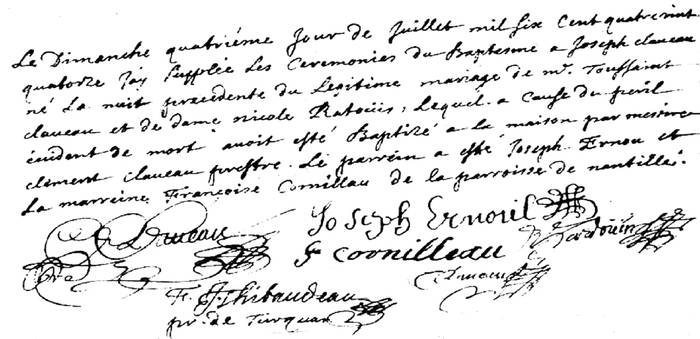 Le Dimanche quatriéme jour de Juillet mil six cent quatrevint
quatorze Jay supplée Les Ceremonies du Baptesme a Joseph claveau
né La nuit precedente du Legitime mariage de mr. Toussaint
claveau et de dame nicole Ratouis, Lequel a cause du peril
évident de mort avoit esté Baptizé a la maison par messire
clement claveau prestre. Le parrein a esté Joseph Ernou et
La marreine Francoise Cornillau de la parroisse de nantillé.
Joseph Ernouil
f coornilleau
fr. J. Thibaudeau
pr. de Turquan